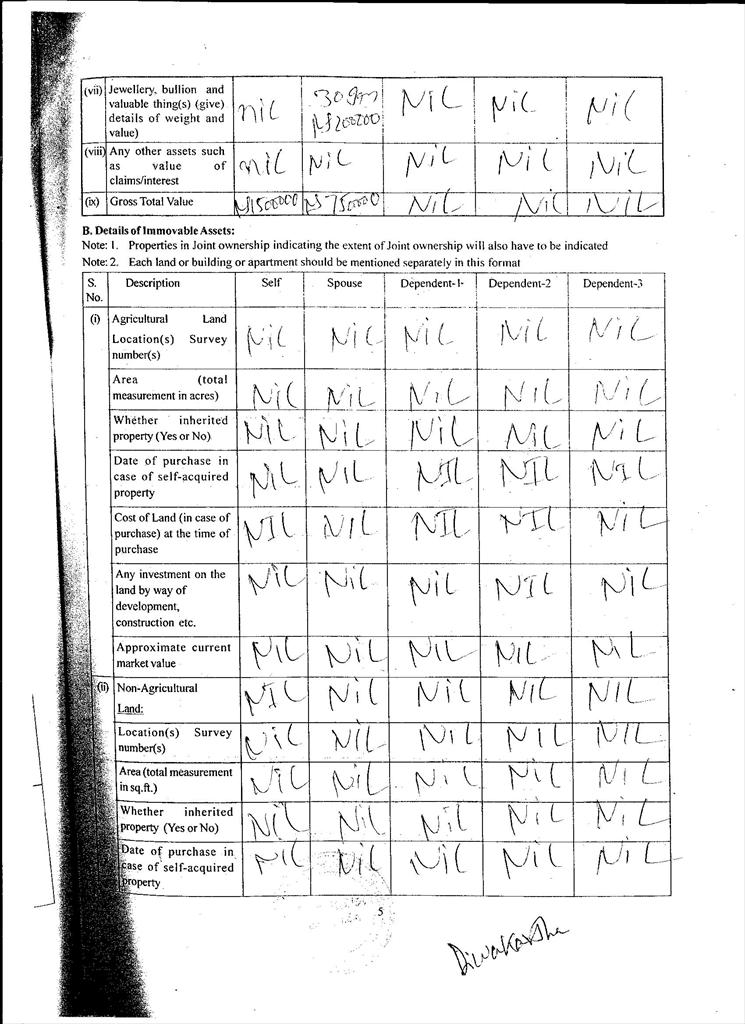 (vii) Jewellery, bullion and
valuable thing(s) (give)
details of weight and
value)
nil 30gm Nil Nil Nil
(viii) Any other assets such
as value of
claims/interest
nil Nil Nil Nil Nil
(ix) Gross Total Value Nil Nil Nil
B. Details of Immovable Assets:
Note: 1. Properties in Joint ownership indicating the extent of Joint ownership will also have to be indicated
Note: 2. Each land or building or apartment should be mentioned separately in this format
S. No. Description Self Spouse Dependent-1 Dependent-2 Dependent-3
(i) Agricultural Land
Location(s) Survey
number(s)
Nil Nil Nil Nil Nil
Area (total
measurement in acres)
Nil Nil Nil Nil Nil
Whether inherited
property (Yes or No)
Nil Nil Nil Nil Nil
Date of purchase in
case of self-acquired
property
Nil Nil NIL NIL NIL
Cost of Land (in case of
purchase) at the time of
purchase
NIL Nil NIL NIL Nil
Any investment on the
land by way of
development,
construction etc.
Nil Nil Nil NIL Nil
Approximate current
market value
Nil Nil Nil Nil Nil
(ii) Non-Agricultural
Land:
NIL Nil Nil Nil Nil
Location(s) Survey
number(s)
Nil Nil Nil Nil Nil
Area (total measurement
in sq.ft.)
Nil Nil Nil Nil Nil
Whether inherited
property (Yes or No)
Nil Nil Nil Nil Nil
Date of purchase in
case of self-acquired
property
Nil Nil Nil Nil Nil
5